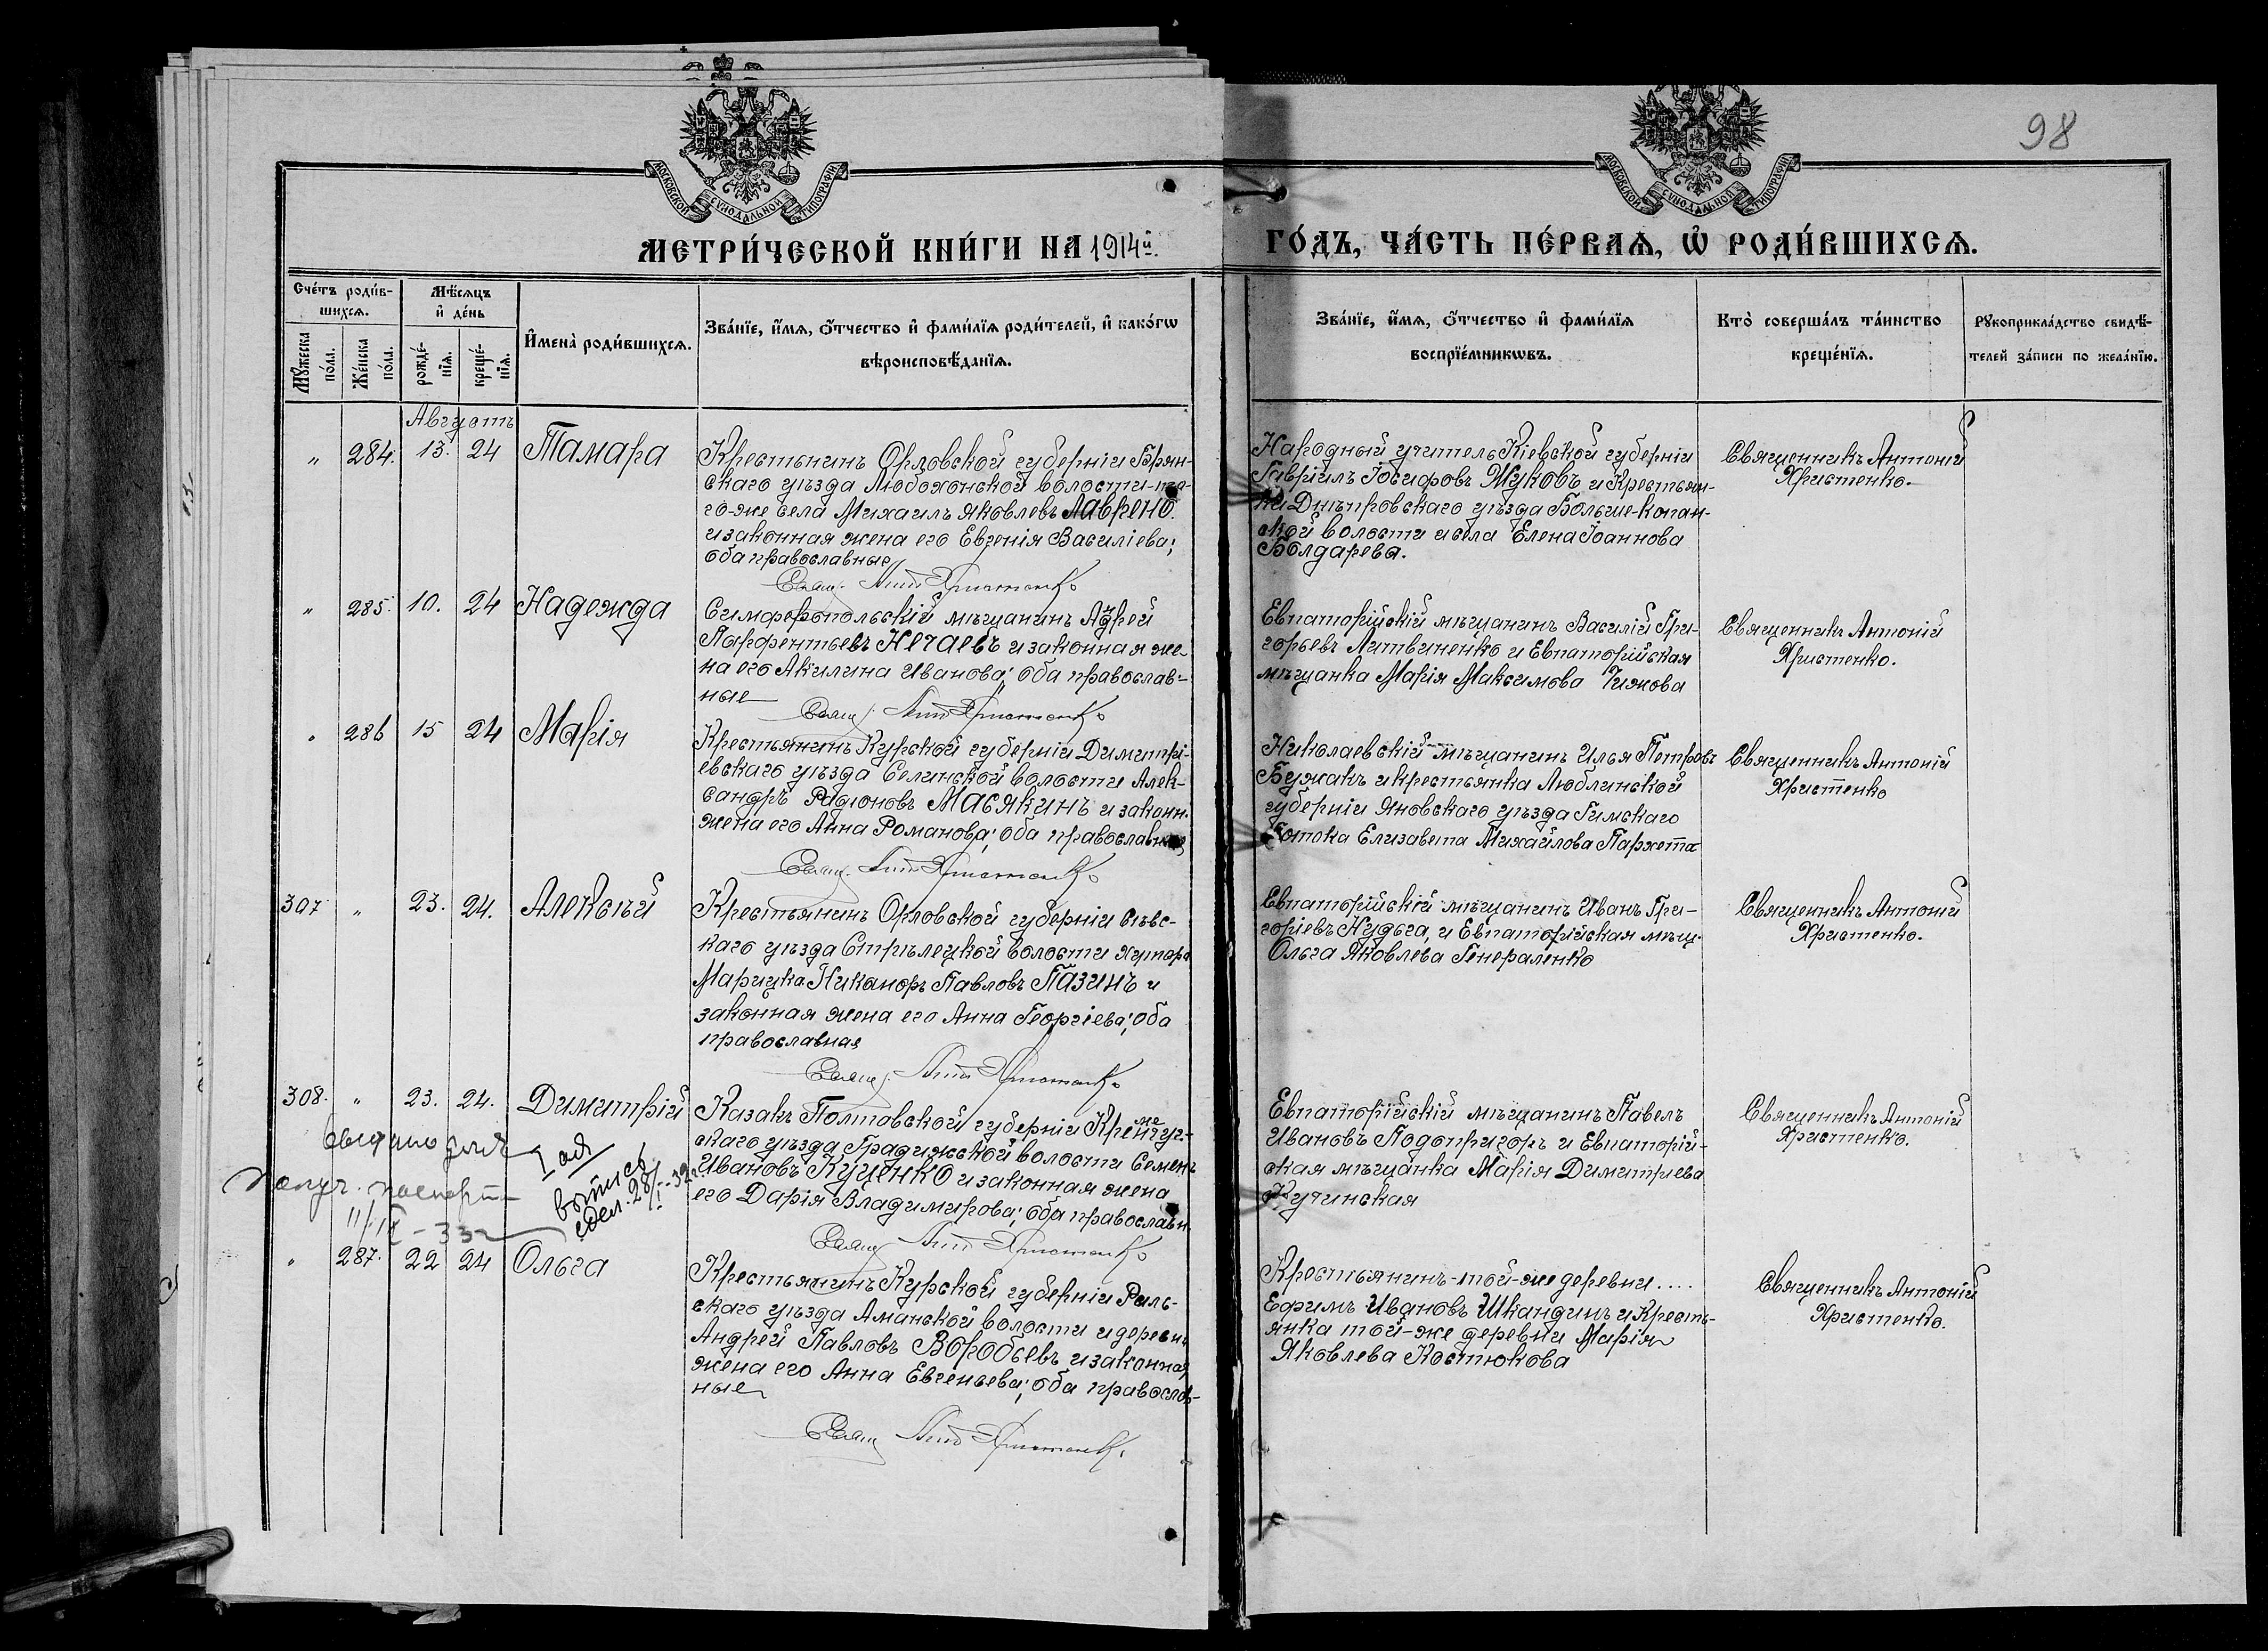 98
МОСКОВСКОЙ СѴНОДАЛЬНОЙ ТИПОГРАФІИ
МОСКОВСКОЙ СѴНОДАЛЬНОЙ ТИПОГРАФІИ
МЕТРИ́ЧЕСКОЙ КНИ́ГИ НА 1914й.
ГО́ДЪ, ЧА́СТЬ ПЕ́РВАѦ, Ѡ҆ РОДИ́ВШИХСѦ.
Сче́тъ роди́в-
шихсѧ.
Мꙋ́жеска по́ла.
Же́нска по́ла.
Мѣ́сѧцъ
и҆ де́нь
рожде́-
нїѧ.
креще́-
нїѧ.
И҆мена̀ роди́вшихсѧ.
Зва́нїе, и҆́мѧ, ѻ҆́тчество и҆ фами́лїѧ роди́телей, и҆ како́гѡ
вѣроисповѣ́данїѧ.
Зва́нїе, и҆́мѧ, ѻ҆́тчество и҆ фами́лїѧ
воспрїе́мникѡвъ.
Кто̀ соверша́лъ та́инство
креще́нїѧ.
Рꙋкоприкла́дство свидѣ́-
телей за́писи по жела́нїю.
Августъ
„ 284. 13. 24 Тамара
Крестьнинъ Орловской губерніи Брян-
скаго уѣзда Любохонской волости-то-
го-же села Михаилъ Яковлевъ Лаврено.
и законная жена его Евгенія Василіева;
оба православные
Свящ. Ант. Христенко
Народный учитель Кіевской губерніи
Гавріилъ Іосифовъ Жуковъ и Крестьян-
ка Днѣпровскаго уѣзда Больше-Копан-
ской волости и села Елена Іоаннова
Болдарева.
Священникъ Антоній
Христенко.
„ 285. 10. 24 Надежда
Симферопольскій мѣщанинъ Андрей
Парфентьевъ Нечаевъ и законная же-
на его Акилина Иванова; оба православ-
ные
Свящ. Ант. Христенко
Евпаторійскій мѣщанинъ Василій Гри-
горьевъ Литвиненко и Евпаторійская
мѣщанка Марія Максимова Чижова
Священникъ Антоній
Христенко.
„ 286 15 24 Марія
Крестьянинъ Курской губерніи Димитрі-
евскаго уѣзда Селинской волости Алек-
сандръ Радіоновъ Масякинъ и законн.
жена его Анна Романова; оба православные
Свящ. Ант. Христенко
Николаевскій мѣщанинъ Илья Петровъ
Бужакъ и крестьянка Люблинской
губерніи Яновскаго уѣзда Гимскаго
Потока Елизавета Михайлова Пархета
Священникъ Антоній
Христенко
307 „ 23. 24. Алексѣй
Крестьянинъ Орловской губерніи Сѣвс-
каго уѣзда Стрѣлецкой волости хутора
Марицка Никаноръ Павловъ Пазинъ и
законная жена его Анна Георгіева; оба
православная
Свящ. Ант. Христенко
Евпаторійскій мѣщанинъ Иванъ Гри-
горіевъ Нудьга, и Евпаторійская мѣщ.
Ольга Яковлева Генераленко
Священникъ Антоній
Христенко.
308. „ 23. 24. Димитрій
Казакъ Полтовской губерніи Кременчуг-
скаго уѣзда Градижской волости Семенъ
Ивановъ Куценко и законная жена
его Дарія Владимирова; оба православн.
Свящ. Ант. Христенко
получ. паспорт
11/IX-33г
выпись
сдел. 28/I-32г.
Евпаторійскій мѣщанинъ Павелъ
Ивановъ Подопригоръ и Евпаторій-
ская мѣщанка Марія Димитриева
Кучинская
Священникъ Антоній
Христенко.
„ 287. 22 24 Ольга
Крестьянинъ Курской губерніи Риль-
скаго уѣзда Аманской волости и деревн.
Андрей Павловъ Воробьевъ и законная
жена его Анна Евгеньева; оба православ-
ные
Свящ. Ант. Христенко
Крестьянинъ-той-же деревни....
Ефимъ Ивановъ Шкандинъ и Кресть-
янка той-же деревни Марія
Яковлева Костюкова
Священникъ Антоній
Христенко.